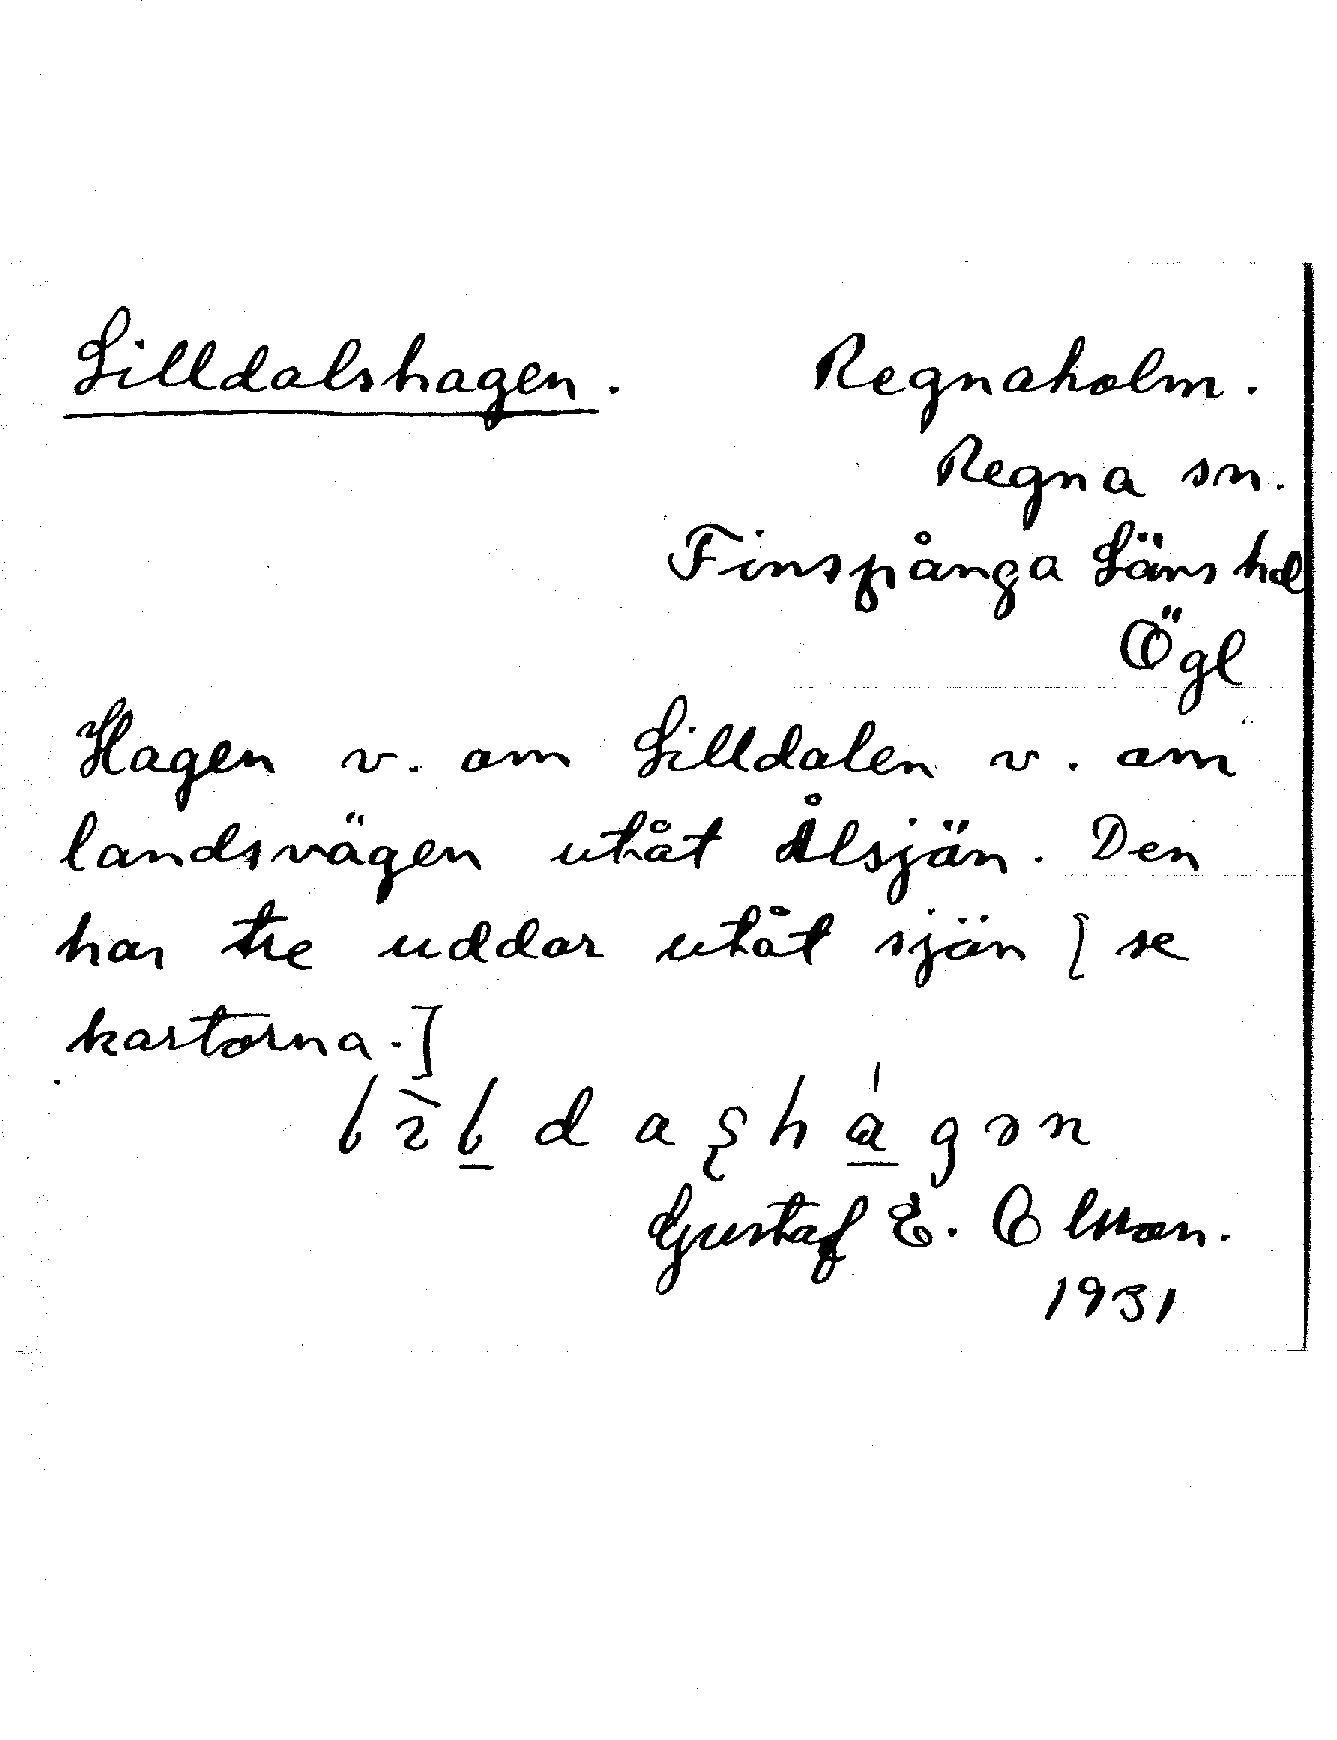 Lilldalshagen. Regnaholm.
Regna sn.
Finspånga Läns hd
Ögl
Hagen v. om Lilldalen v. om
landsvägen utåt Ålsjön. Den
har tre uddar utåt sjön [ se
kartorna.]
Gustaf E. Olsson.
1931